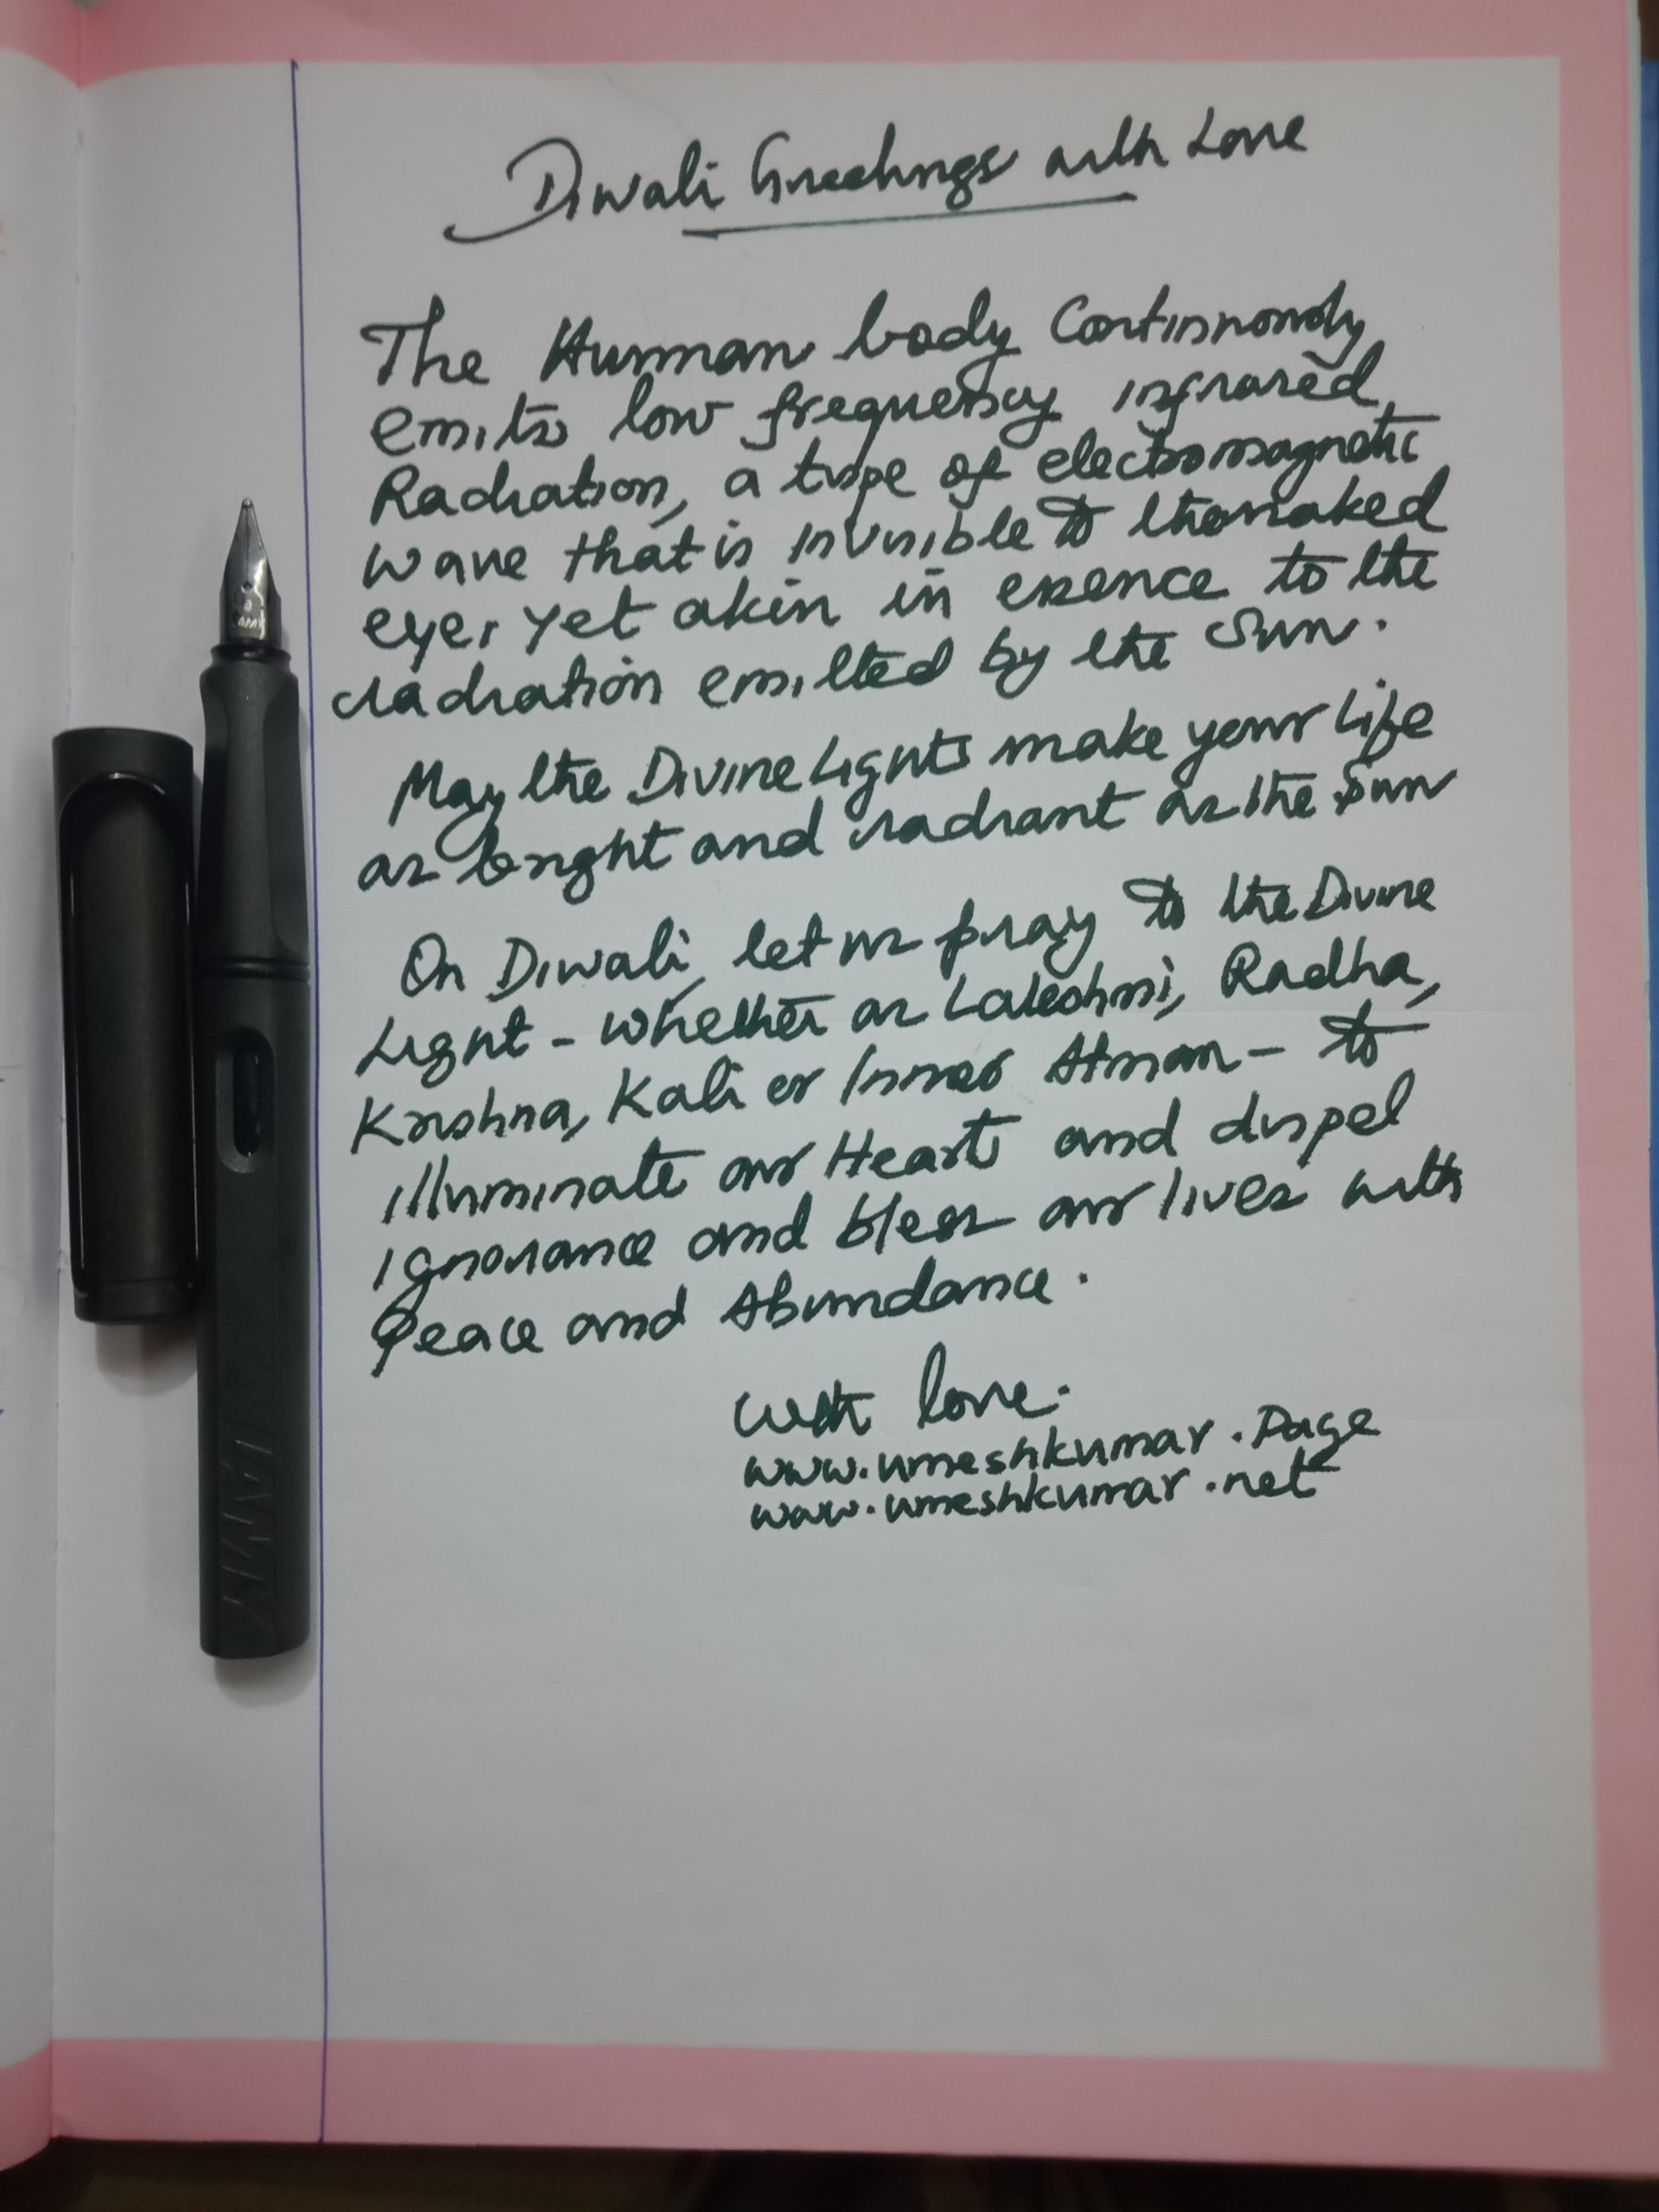 Diwali Greetings with Love
The Human body Continuously
emits low frequency infrared
Radiation, a type of electromagnetic
wave that is invisible to the naked
eye, yet akin in essence to the
radiation emitted by the Sun.
May the Divine Lights make your Life
as bright and radiant as the Sun
On Diwali, let us pray to the Divine
Light - whether as Lakshmi, Radha,
Krishna, Kali or Inner Atman - to
illuminate our Hearts and dispel
ignorance and bless our lives with
Peace and Abundance.
with love.
www.umeshkumar.Page
www.umeshkumar.net
LAMY